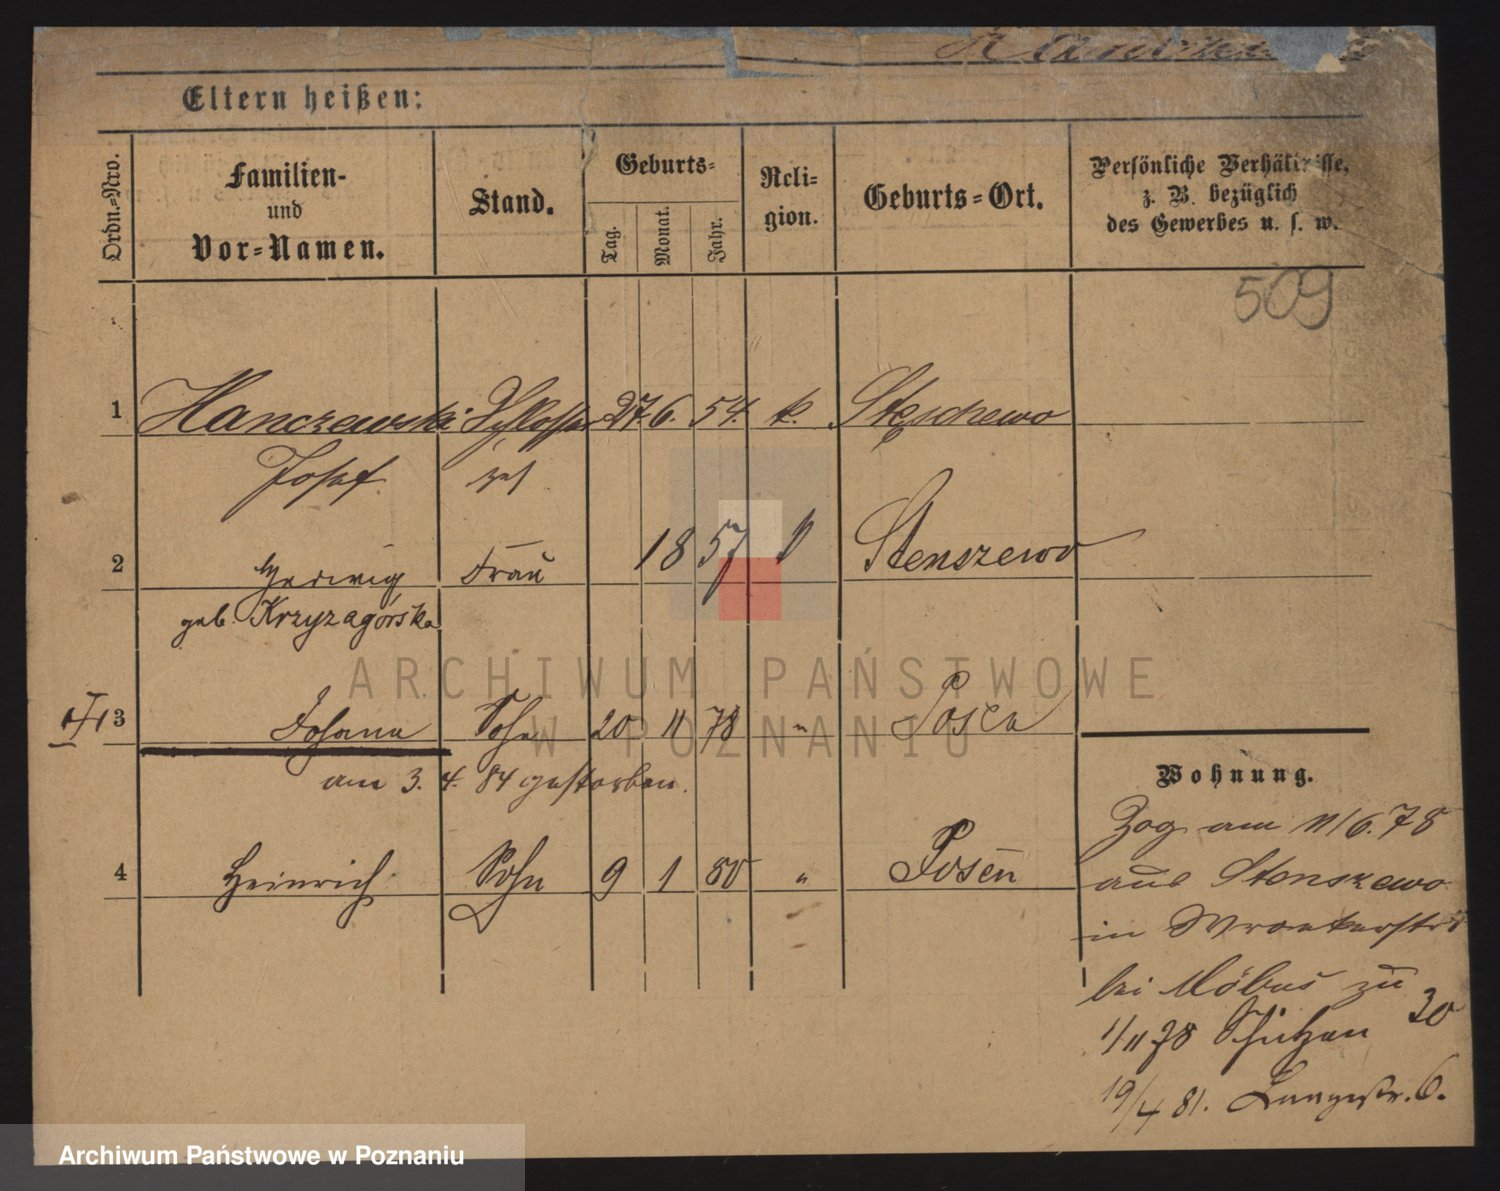 Eltern heißen:
Ordn.-Nro.
Familien-
und
Vor-Namen.
Stand.
Geburts-
Tag.
Monat.
Jahr.
Reli-
gion.
Geburts-Ort.
Persönliche Verhältnisse,
z. B. bezüglich
des Gewerbes u. s. w.
509
1 Hanczewski Schlosser 27. 6. 54. k. Stęschewo
Josef ges
2 Hedwig Frau 1857 Stenszewo
geb. Krzyzagórska
3 Johann Sohn 20 11 78 " Posen
am 3. 4. 84 gestorben.
4 Heinrich Sohn 9 1 80 " Posen
Wohnung.
Zog am 11/6. 78
aus Stenszewo
in Wronkerstr
bei Möbus zu
1/11 78 Schützen 30
19/4 81. Langestr. 6.
ARCHIWUM PAŃSTWOWE
W POZNANIU
Archiwum Państwowe w Poznaniu